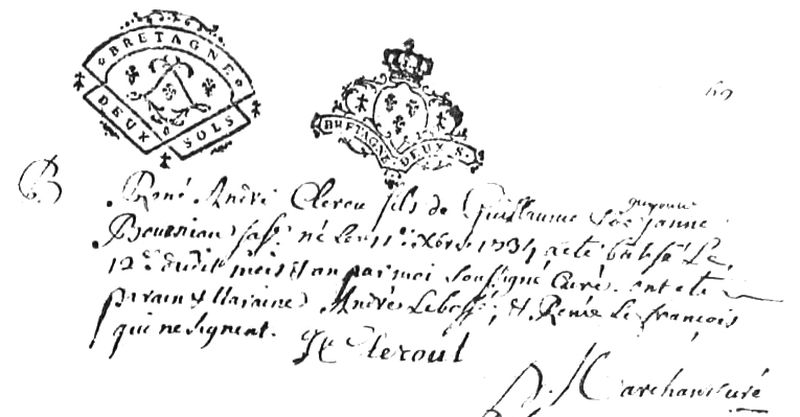 BRETAGNE
DEUX SOLS
BRETAGNE · DEUX · S.
69
B
René André Clerou fils de Guillaume
Boursion sa fe. né le 11e. xbre 1734 a été batisé Le
12e. dudit mois et an par moi soussigné Curé. ont ete
parain & Maraine André Lebossé, & Renée Le françois
qui ne signent.
Clerout
Marchant curé